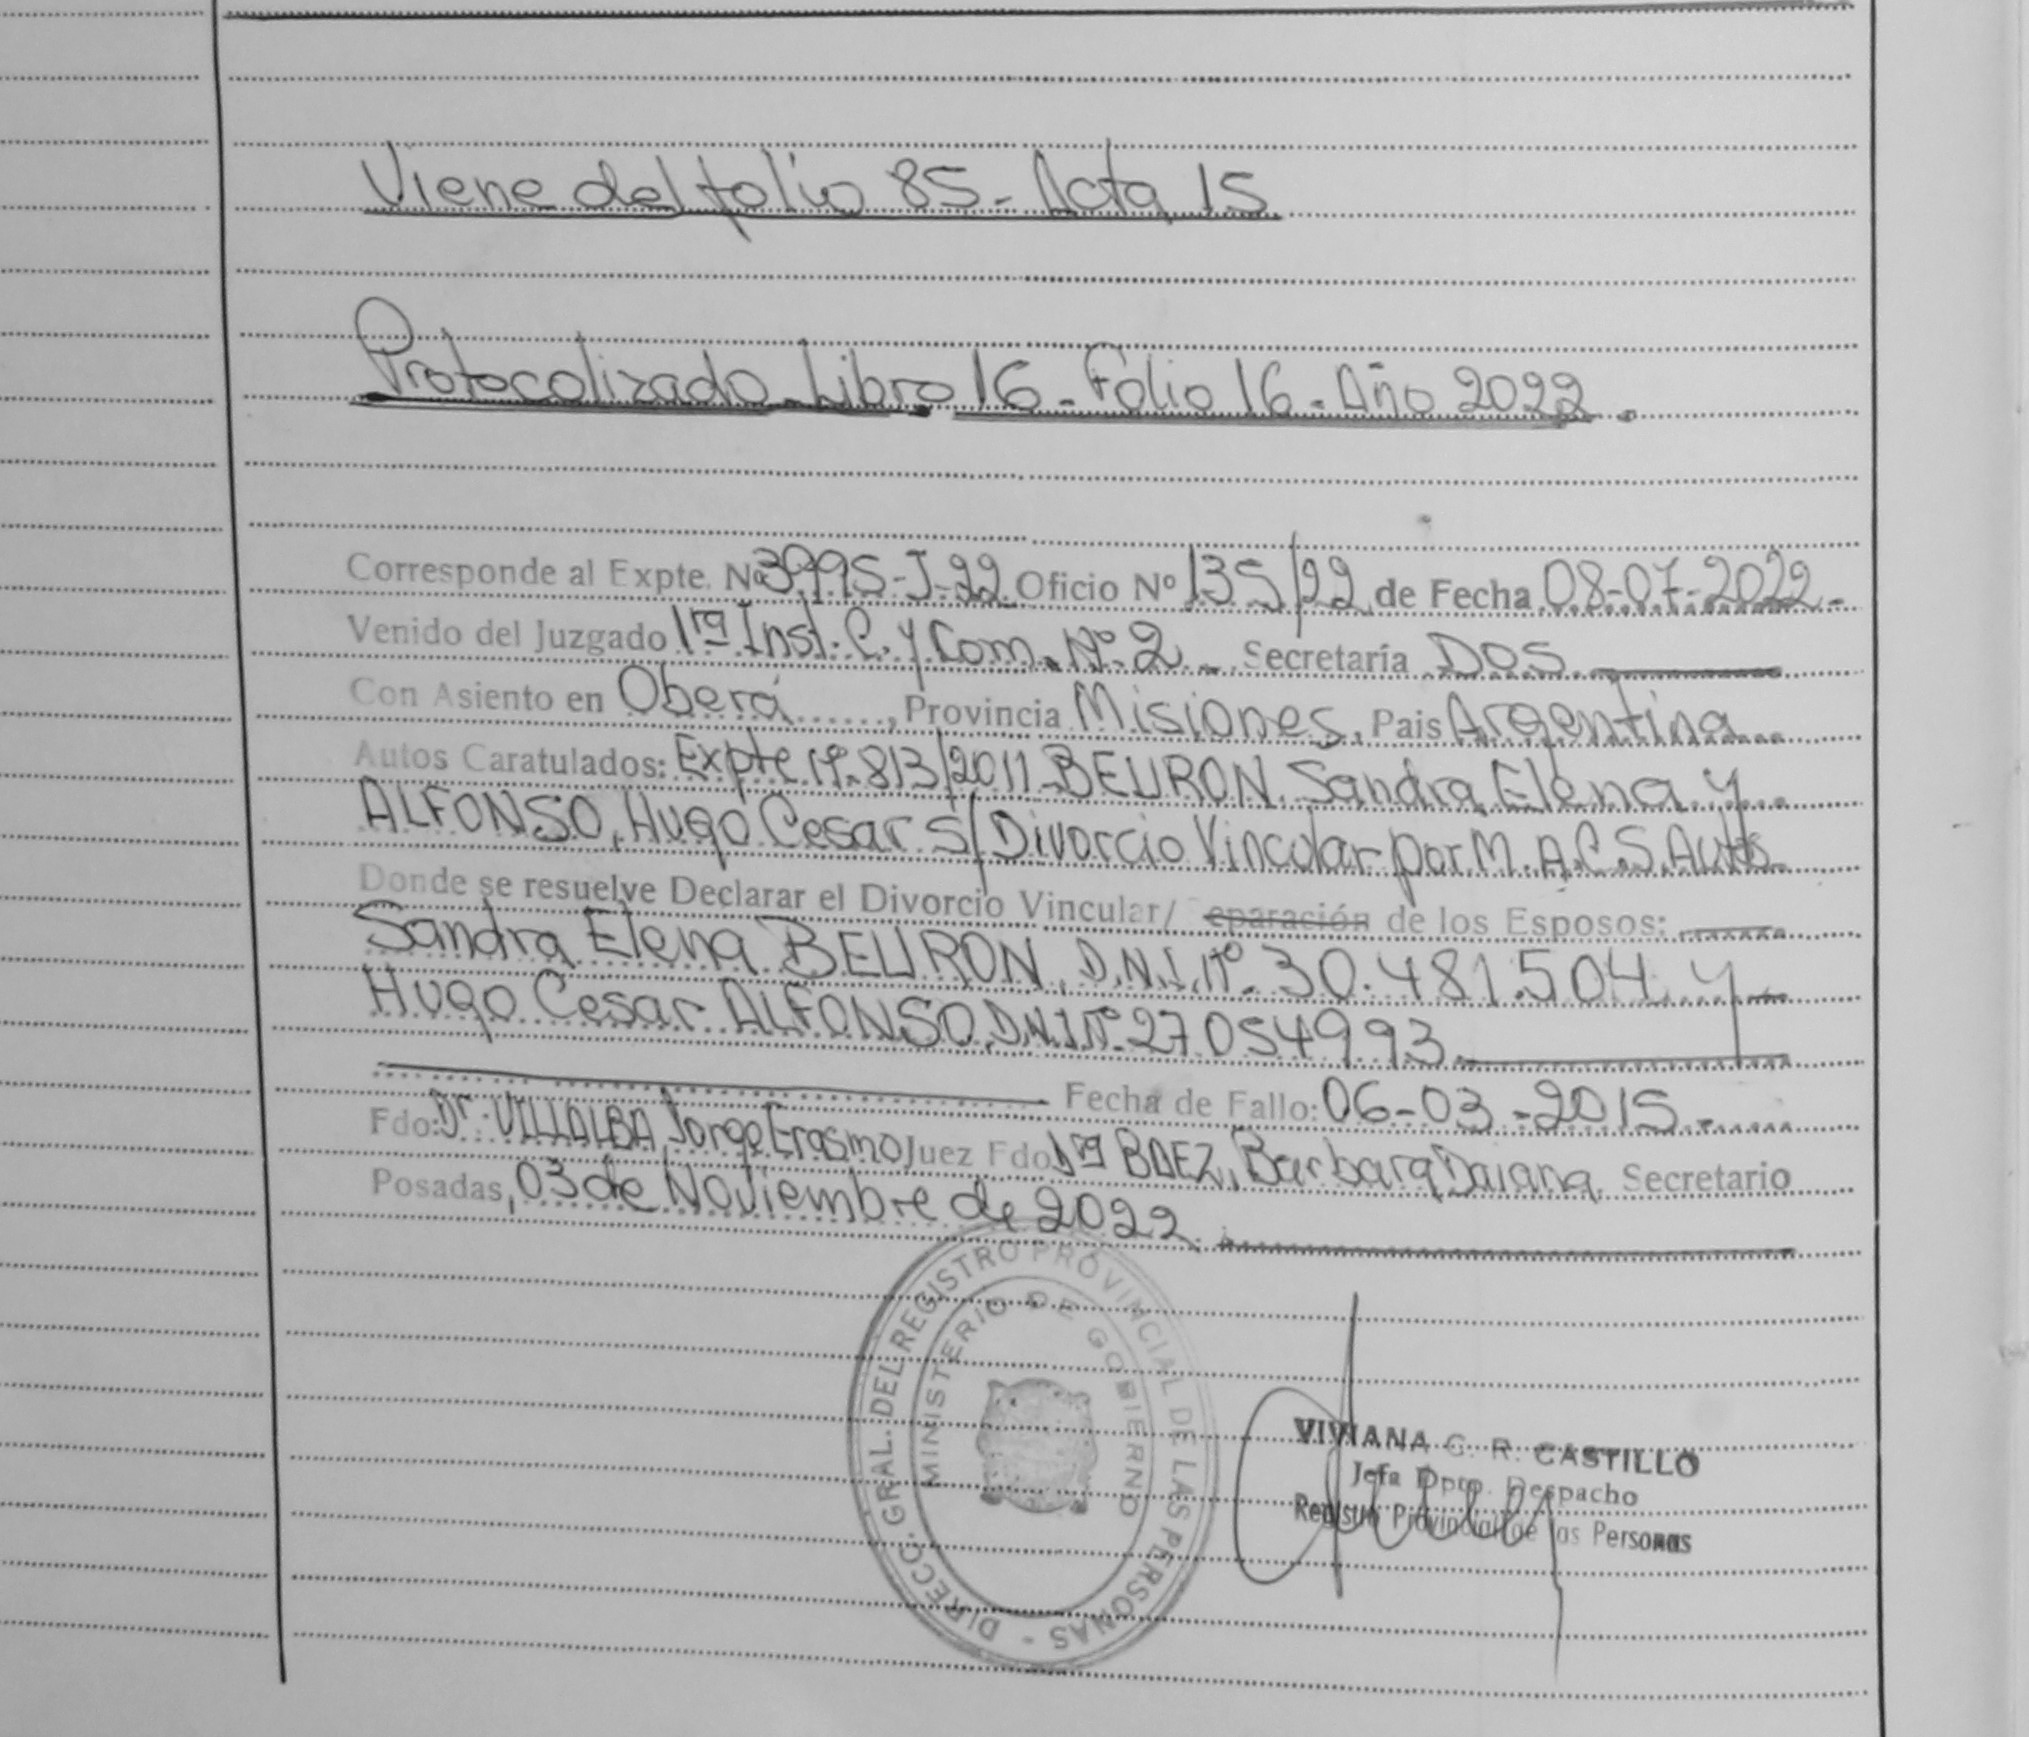 Viene del folio 85 - Acta 15
Protocolizado - Libro 16 - Folio 16 - Año 2022.
Corresponde al Expte. Nº 3995-J-22 Oficio Nº 135/22 de Fecha 08-07-2022.
Venido del Juzgado 1ra Inst. C. y Com. Nº 2 Secretaría DOS
Con Asiento en Oberá, Provincia Misiones, Pais Argentina
Autos Caratulados: Expte Nº 813/2011 BEURON, Sandra Elena y
ALFONSO, Hugo Cesar S/Divorcio Vincular por M.A.C.S. Autos
Donde se resuelve Declarar el Divorcio Vincular/ eparación de los Esposos:
Sandra Elena BEURON, D.N.I. Nº 30.481.504 y
Hugo Cesar ALFONSO, D.N.I. Nº 27054993
Fecha de Fallo: 06-03-2015.
Fdo: Dr. VILLALBA Jorge Erasmo Juez Fdo Dra BAEZ, Barbara Daiana Secretario
Posadas, 03 de Noviembre de 2022
DIRECC. GRAL. DEL REGISTRO PROVINCIAL DE LAS PERSONAS -
MINISTERIO DE GOBIERNO
VIVIANA C. R. CASTILLO
Jefa Dpto. Despacho
Registro Provincial de las Personas